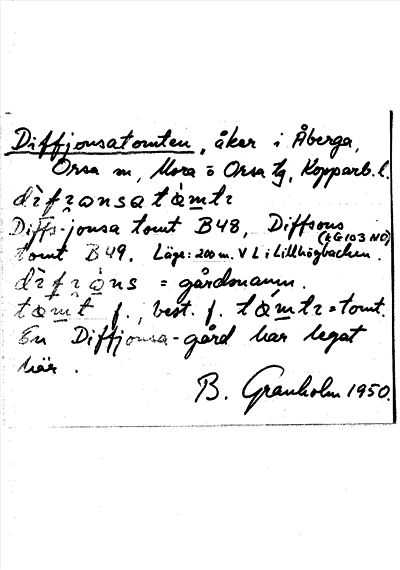 Diffjonsatomten, åker i Åberga,
Orsa sn, Mora o Orsa tg, Kopparb. l.
dìfʒonsatàmtɪ
Diffs-jonsa tomt B48, Diffsons
(LG103 NO)
tomt B49. Läge: 200 m. V L i Lillhögbacken.
dìfʒòns = gårdsnamn.
tamt f., best. f. tàmtɪ = tomt.
En Diffjonsa-gård har legat
här.
B. Granholm 1950.